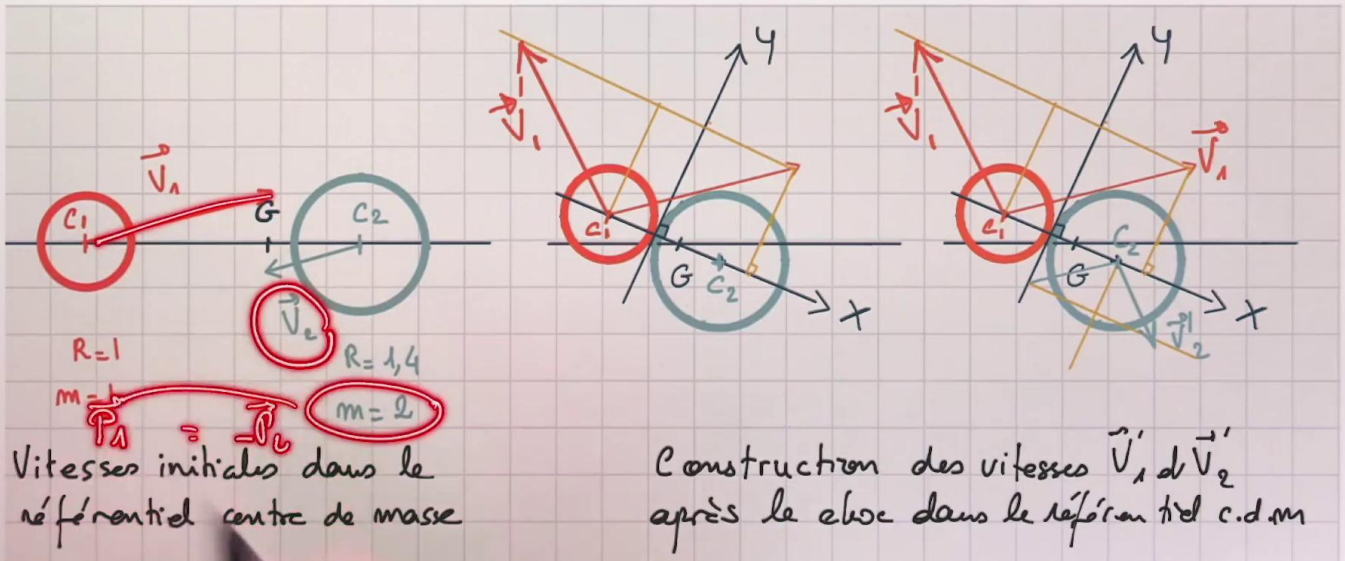 V₁
C1
G
C2
V₂
R=1
R=1,4
m=1
m=2
P₁ = -P₂
Vitesses initiales dans le
référentiel centre de masse
y
V'₁
C1
G
C2
x
y
V'₁
V₁
C1
G
C2
V'₂
x
Construction des vitesses V'₁ et V'₂
après le choc dans le référentiel c.d.m